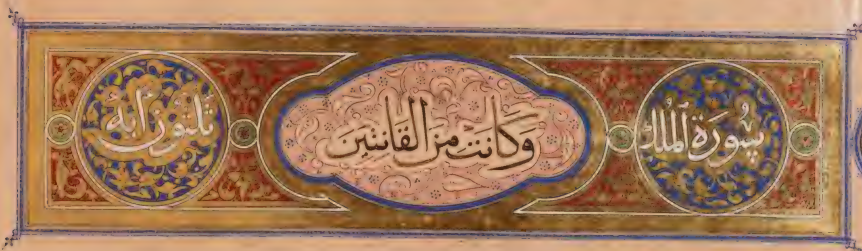 سُورَةُ الْمُلْك
وَكَانَتْ مِنَ الْقَانِتِينَ
ثلثون آية